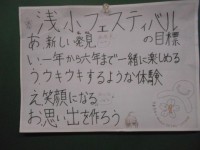 浅小フェスティバル
の目標
あ新しい発見
い一年から六年まで一緒に楽しめる
うウキウキするような体験
え笑顔になる
お思い出を作ろう